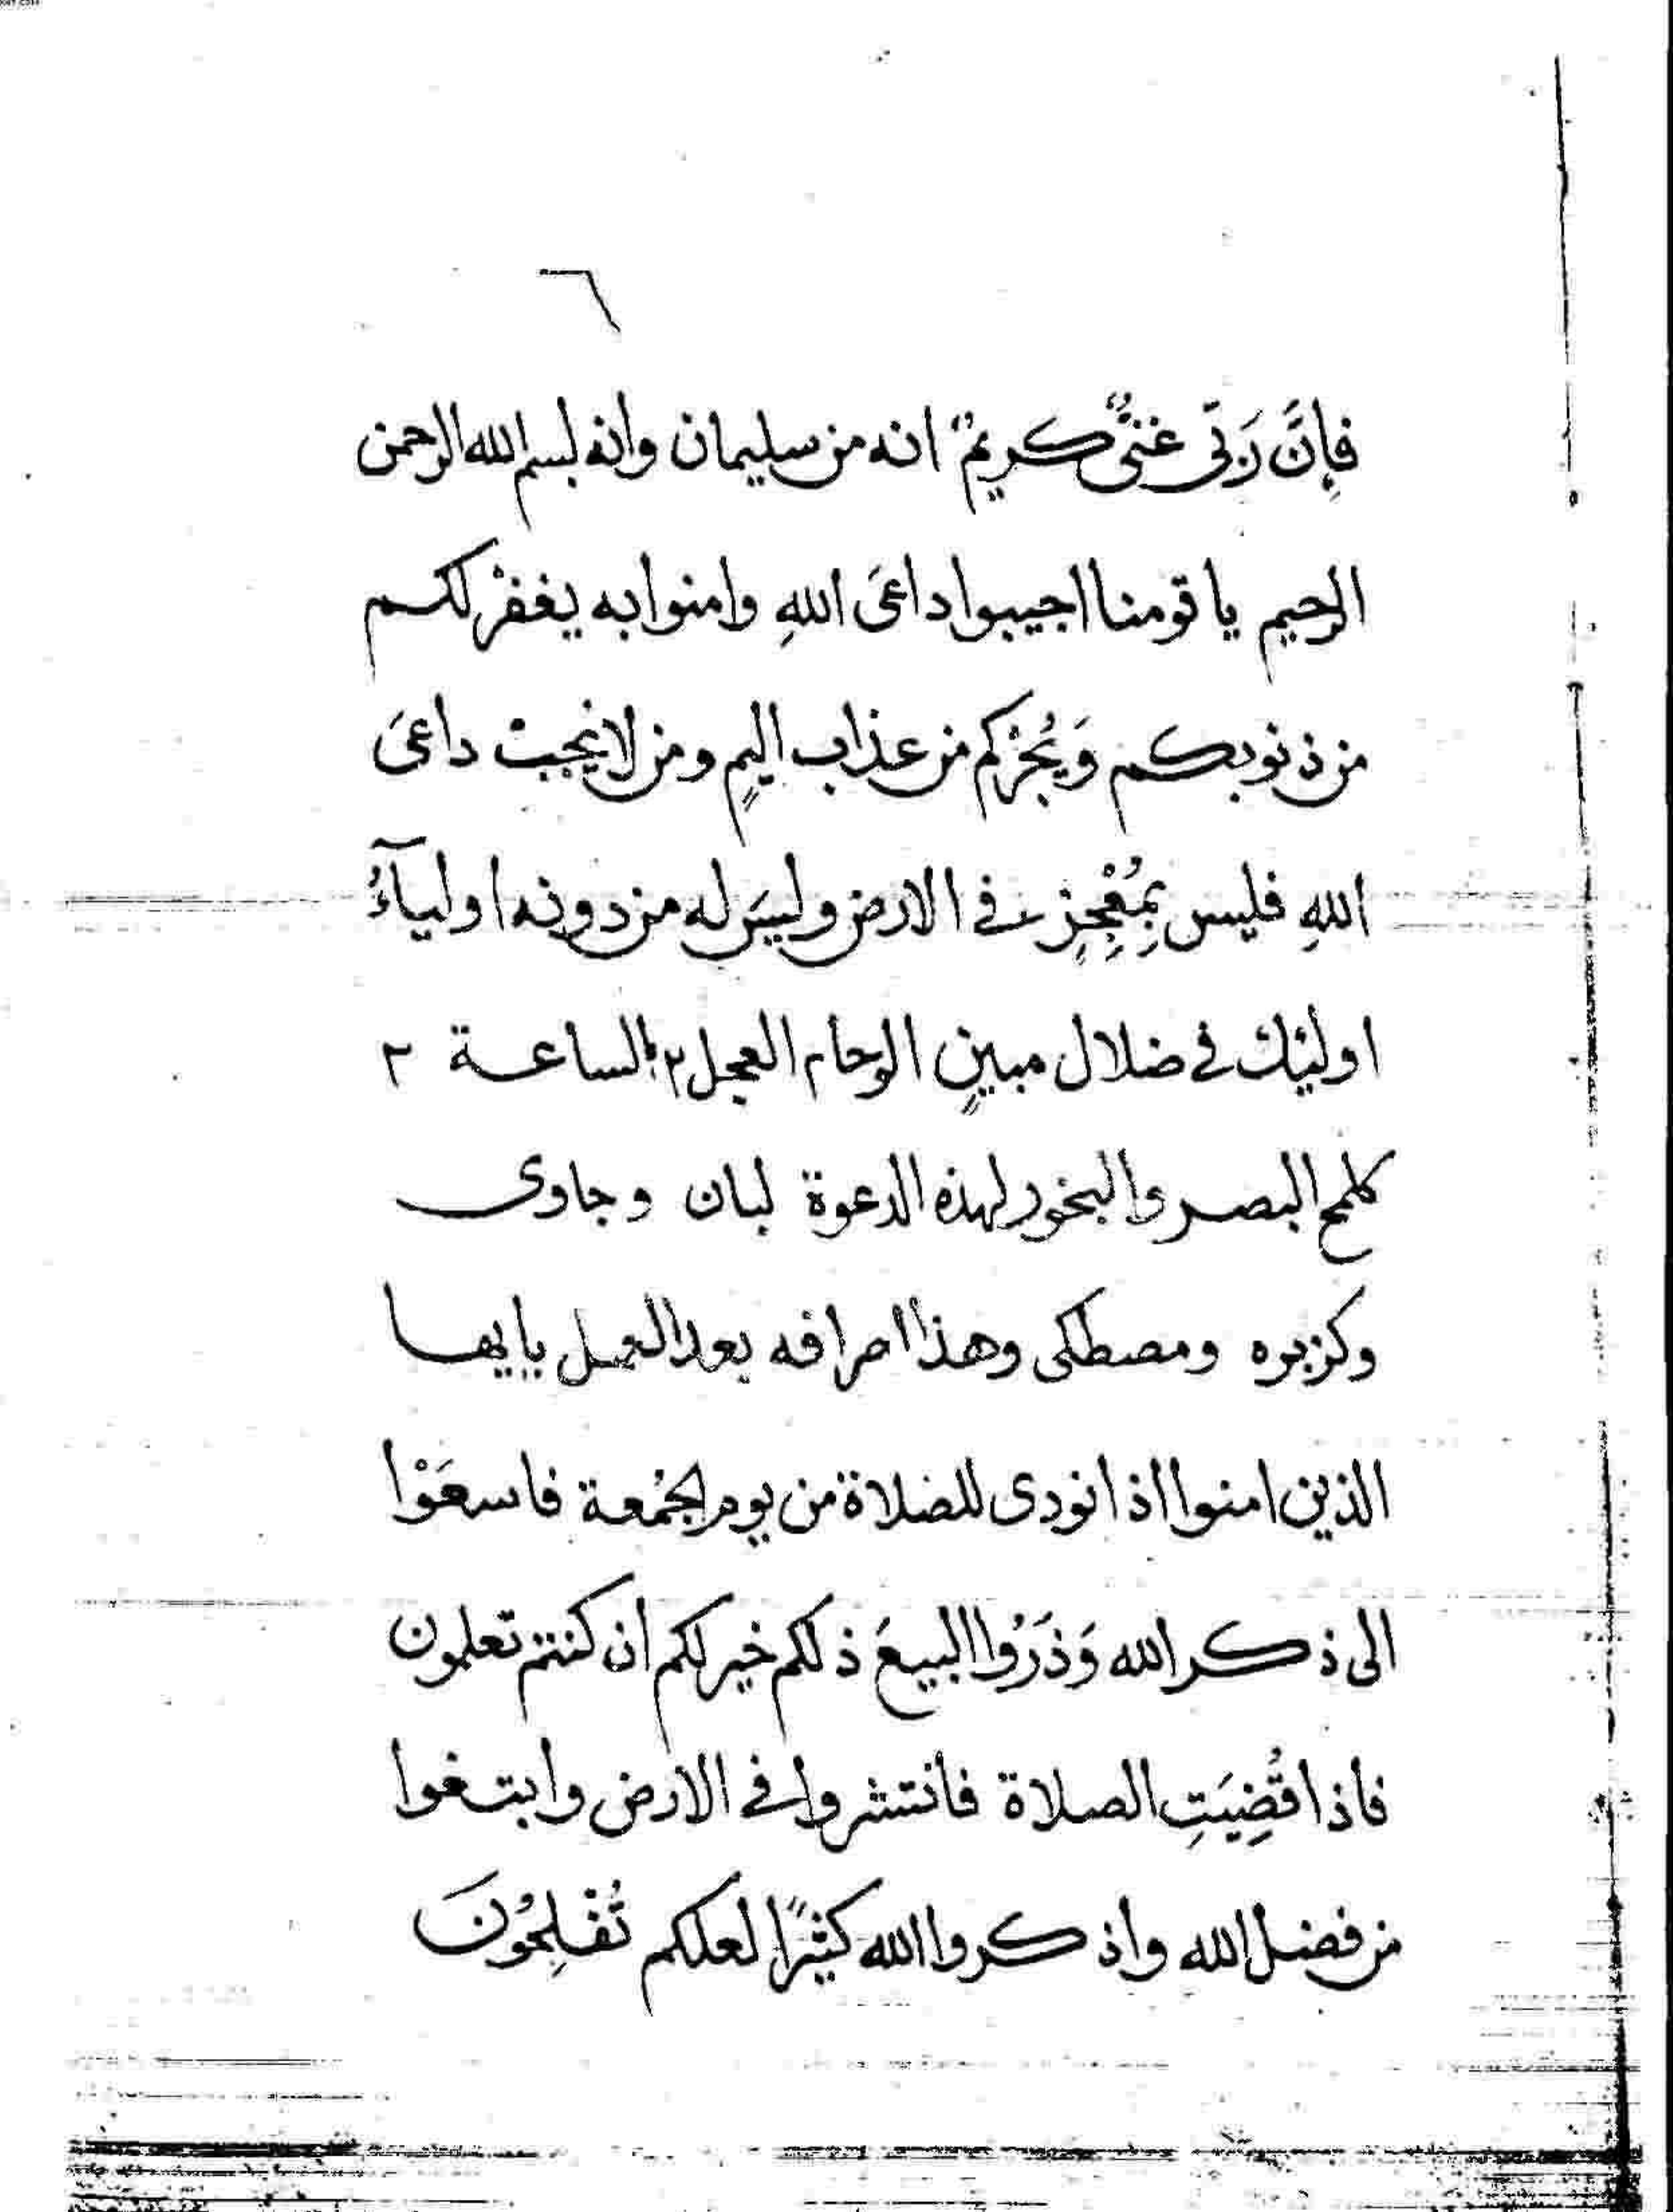 ٦
فَإِنَّ رَبِّى غَنىٌّ كريمٌ انه من سليمان وانه لبسم الله الرحمن
الرحيم يا قومنا اجيبوا داعىَ اللهِ وامنوا به يغفرْ لكم
من ذنوبكم وَيُجْركم من عذاب اليمٍ ومن لا يجبْ داعىَ
اللهِ فليس بِمُعْجِزٍ فى الارض وليسَ له من دونه اولياۤءُ
اولئك فى ضلال مبينٍ الوحا م العجل ٢ الساعة ٢
كلمح البصر والبخور لهذه الدعوة لبان وجاوى
وكزبره ومصطكى وهذا صرافه بعد العمل يايها
الذين امنوا اذا نودى للصلاة من يوم الجمُعة فاسعَوْا
الى ذكر الله وَذَرُوا البيعَ ذلكم خير لكم ان كنتم تعلمون
فاذا قُضِيَتِ الصلاة فانتشروا فى الارض وابتغوا
من فضل الله واذكروا الله كثيرًا لعلكم تُفْلِحُونَ